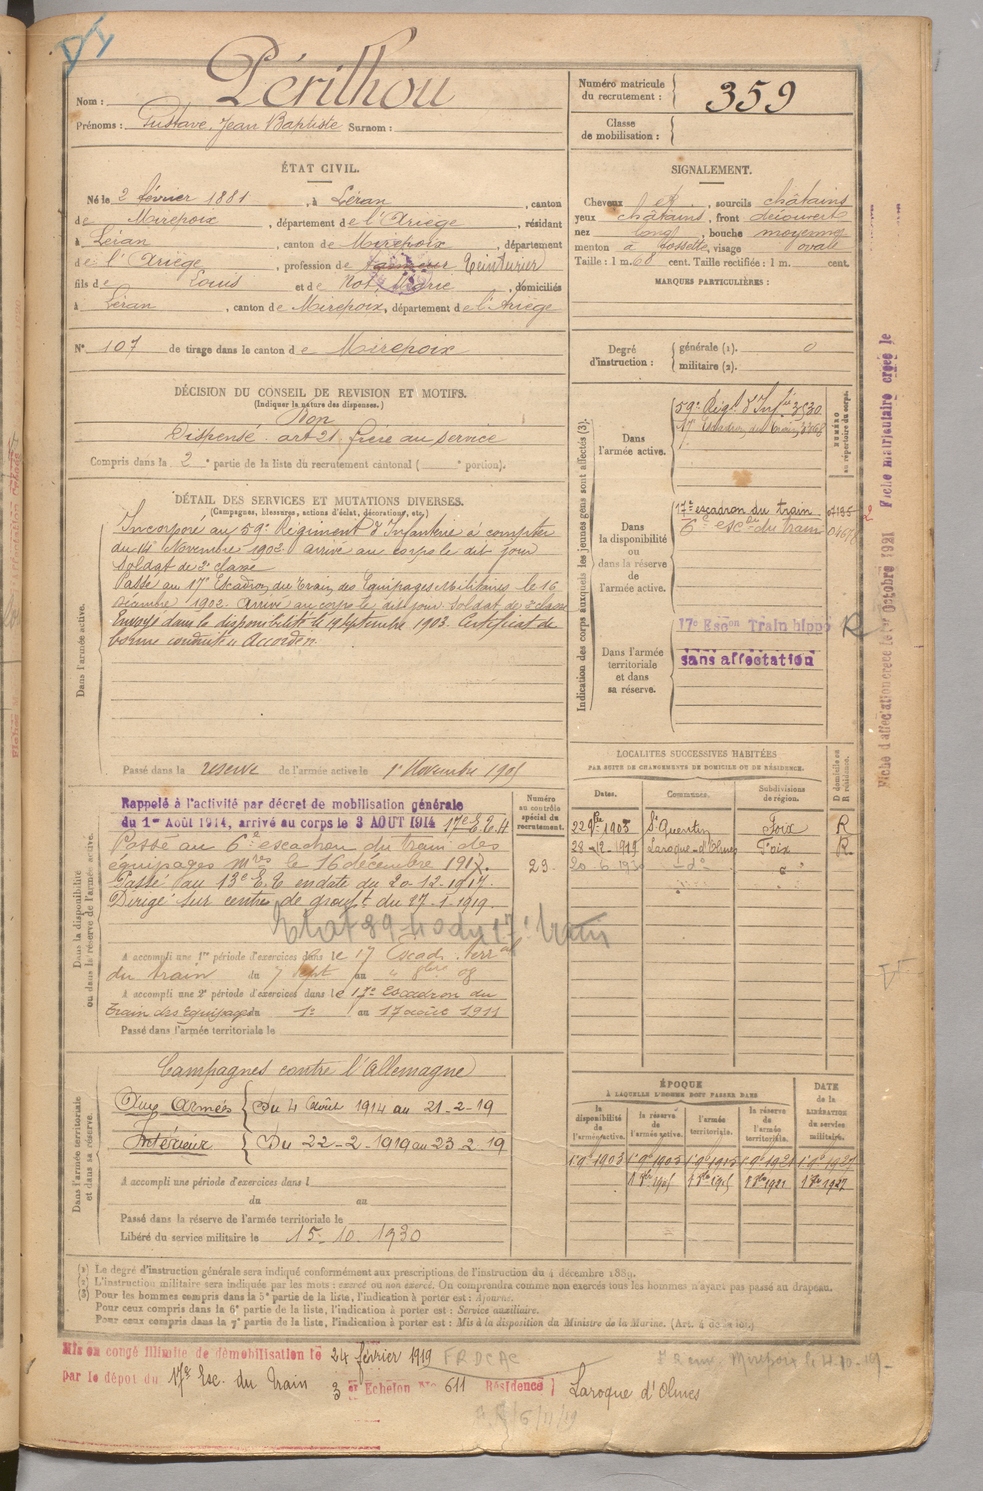 Nom : Périlhou
Prénoms : Gustave, Jean Baptiste Surnom :
Numéro matricule du recrutement : 359
Classe de mobilisation :
ÉTAT CIVIL.
Né le 2 février 1881, à Léran, canton
de Mirepoix, département de l'Ariège, résidant
à Léran, canton de Mirepoix, département
de l'Ariège, profession de Teinturier
fils de Louis et de Rot, Marie, domiciliés
à Léran, canton de Mirepoix, département de l'Ariège
N° 107 de tirage dans le canton de Mirepoix
SIGNALEMENT.
Cheveux et, sourcils châtains
yeux châtains, front découvert
nez long, bouche moyenne
menton à fossette, visage ovale
Taille : 1 m. 68 cent. Taille rectifiée : 1 m. cent.
MARQUES PARTICULIÈRES :
Degré d'instruction : générale (1). 0
militaire (2).
DÉCISION DU CONSEIL DE REVISION ET MOTIFS.
(Indiquer la nature des dispenses.)
Bon
Dispensé art 21 frère au service
Compris dans la 2e partie de la liste du recrutement cantonal ( e portion).
DÉTAIL DES SERVICES ET MUTATIONS DIVERSES.
(Campagnes, blessures, actions d'éclat, décorations, etc.)
Dans l'armée active.
Incorporé au 59e Régiment d'Infanterie à compter
du 14 Novembre 1902 arrivé au corps le dit jour
Soldat de 2e classe
Passé au 17e Escadron du Train des Equipages Militaires le 16
décembre 1902. Arrivé au corps le dit jour Soldat de 2e classe
Envoyé dans la disponibilité le 19 Septembre 1903. Certificat de
bonne conduite « Accordé »
Passé dans la réserve de l'armée active le 1er Novembre 1905
Indication des corps auxquels les jeunes gens sont affectés (3).
NUMÉRO au répertoire du corps.
Dans l'armée active.
59e Régt d'Infrie 3530
17e Escadron du Train 3368
Dans la disponibilité ou dans la réserve de l'armée active.
17e escadron du train
6e escon du train
Dans l'armée territoriale et dans sa réserve.
17e Escon Train hippo R
sans affectation
Fiche matriculaire créée le
Octobre 1921
LOCALITÉS SUCCESSIVES HABITÉES
PAR SUITE DE CHANGEMENTS DE DOMICILE OU DE RÉSIDENCE.
Dates. Communes. Subdivisions de région. D domicile ou R résidence.
22 9bre 1905 St Quentin Foix R
28-12-1919 Laroque-d'Olmes Foix R
20-6-1930 - d° - " "
Dans la disponibilité ou dans la réserve de l'armée active.
Numéro au contrôle spécial du recrutement.
23.
Rappelé à l'activité par décret de mobilisation générale
du 1er Août 1914, arrivé au corps le 3 AOUT 1914 17e E.T.H
Passé au 6e escadron du train des
équipages mres le 16 décembre 1917.
Passé au 13e E.T. en date du 20-12-1917.
Dirigé sur centre de groupt du 27-1-1919.
A accompli une 1re période d'exercices dans le 17 Escad. Terral
du train du 7 Sept au
A accompli une 2e période d'exercices dans le 17e Escadron du
Train des Equipages du 1er au 17 août 1911
Passé dans l'armée territoriale le
Dans l'armée territoriale et dans sa réserve.
Campagnes contre l'Allemagne
Aux Armées { Du 4 Août 1914 au 21-2-19
Intérieur { Du 22-2-1919 au 23-2-19
A accompli une période d'exercices dans l
du au
Passé dans la réserve de l'armée territoriale le
Libéré du service militaire le 15-10-1930
ÉPOQUE
À LAQUELLE L'HOMME DOIT PASSER DANS
la disponibilité de l'armée active. la réserve de l'armée active. l'armée territoriale. la réserve de l'armée territoriale. DATE de la LIBÉRATION du service militaire.
1er 9bre 1903 1er 9bre 1905 1er 9bre 1915 1er 9bre 1921 1er 9bre 1927
1 8bre 1905 1 8bre 1915 1 8bre 1921 1 8bre 1927
(1) Le degré d'instruction générale sera indiqué conformément aux prescriptions de l'instruction du 4 décembre 1889.
(2) L'instruction militaire sera indiquée par les mots : exercé ou non exercé. On comprendra comme non exercés tous les hommes n'ayant pas passé au drapeau.
(3) Pour les hommes compris dans la 5e partie de la liste, l'indication à porter est : Ajourné.
Pour ceux compris dans la 6e partie de la liste, l'indication à porter est : Service auxiliaire.
Pour ceux compris dans la 7e partie de la liste, l'indication à porter est : Mis à la disposition du Ministre de la Marine. (Art. 4 de la loi.)
Mis en congé illimité de démobilisation le 24 février 1919
par le dépôt du 17e Esc. du Train 3 er Echelon No 611 Résidence } Laroque d'Olmes